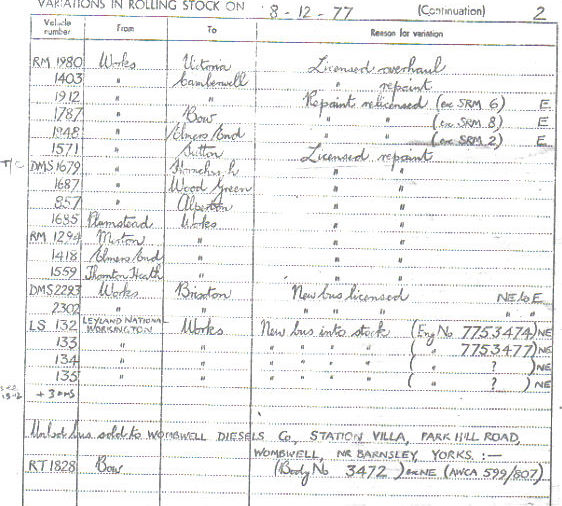 VARIATIONS IN ROLLING STOCK ON 8-12-77 (Continuation) 2
Vehicle number From To Reason for variation
RM 1980 Works Victoria Licensed overhaul
1403 " Camberwell " repaint
1912 " " Repaint relicensed (ex SRM 6) E
1787 " Bow " " (ex SRM 8) E
1948 " Elmers End " " (ex SRM 2) E
1571 " Sutton Licensed repaint
T/C DMS 1679 " Hornchurch " "
1687 " Wood Green " "
857 " Alperton " "
1685 Plumstead Works " "
RM 1294 Merton " " "
1418 Elmers End " " "
1559 Thornton Heath " " "
DMS 2293 Works Brixton New bus licensed NE to E
2302 " " " " " " " "
LS 132 LEYLAND NATIONAL WORKINGTON Works New bus into stock (Eng No 7753474) NE
133 " " " " " " ( " 7753477) NE
134 " " " " " " ( " ? ) NE
135 " " " " " " ( " ? ) NE
+ 3 DMS
bus sold to WOMBWELL DIESELS Co, STATION VILLA, PARK HILL ROAD,
WOMBWELL, NR BARNSLEY, YORKS. :—
RT 1828 Bow (Body No 3472) ex NE (AWCA 599/807)